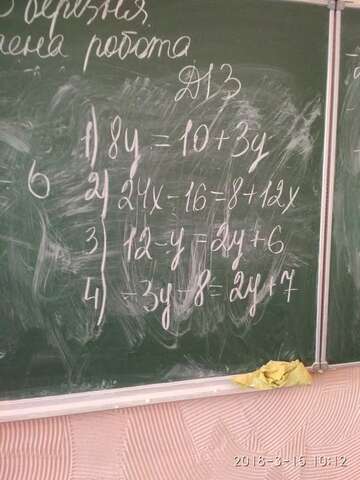 березня
робота
ДПЗ
1) 8y = 10 + 3y
6
2) 24x - 16 = 8 + 12x
3) 12 - y = 2y + 6
4) -3y - 8 = 2y + 7
2018-3-15 10:12